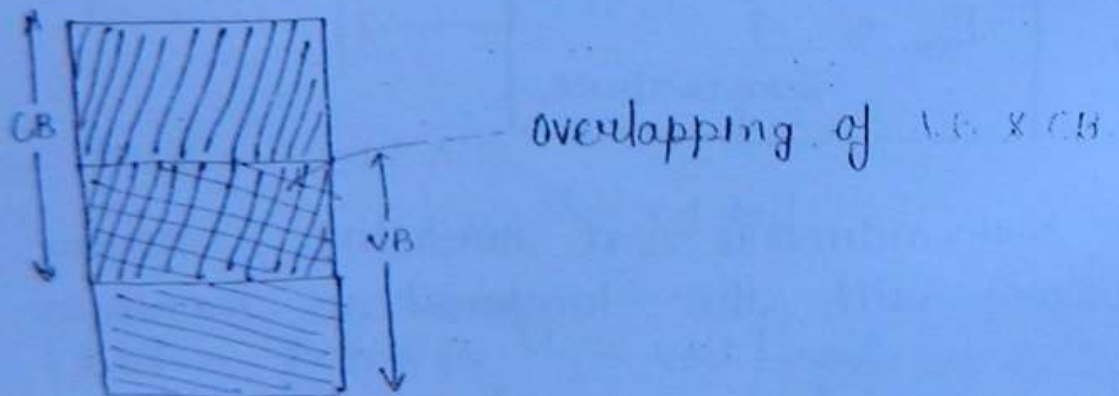 CB
overlapping of VB & CB
VB